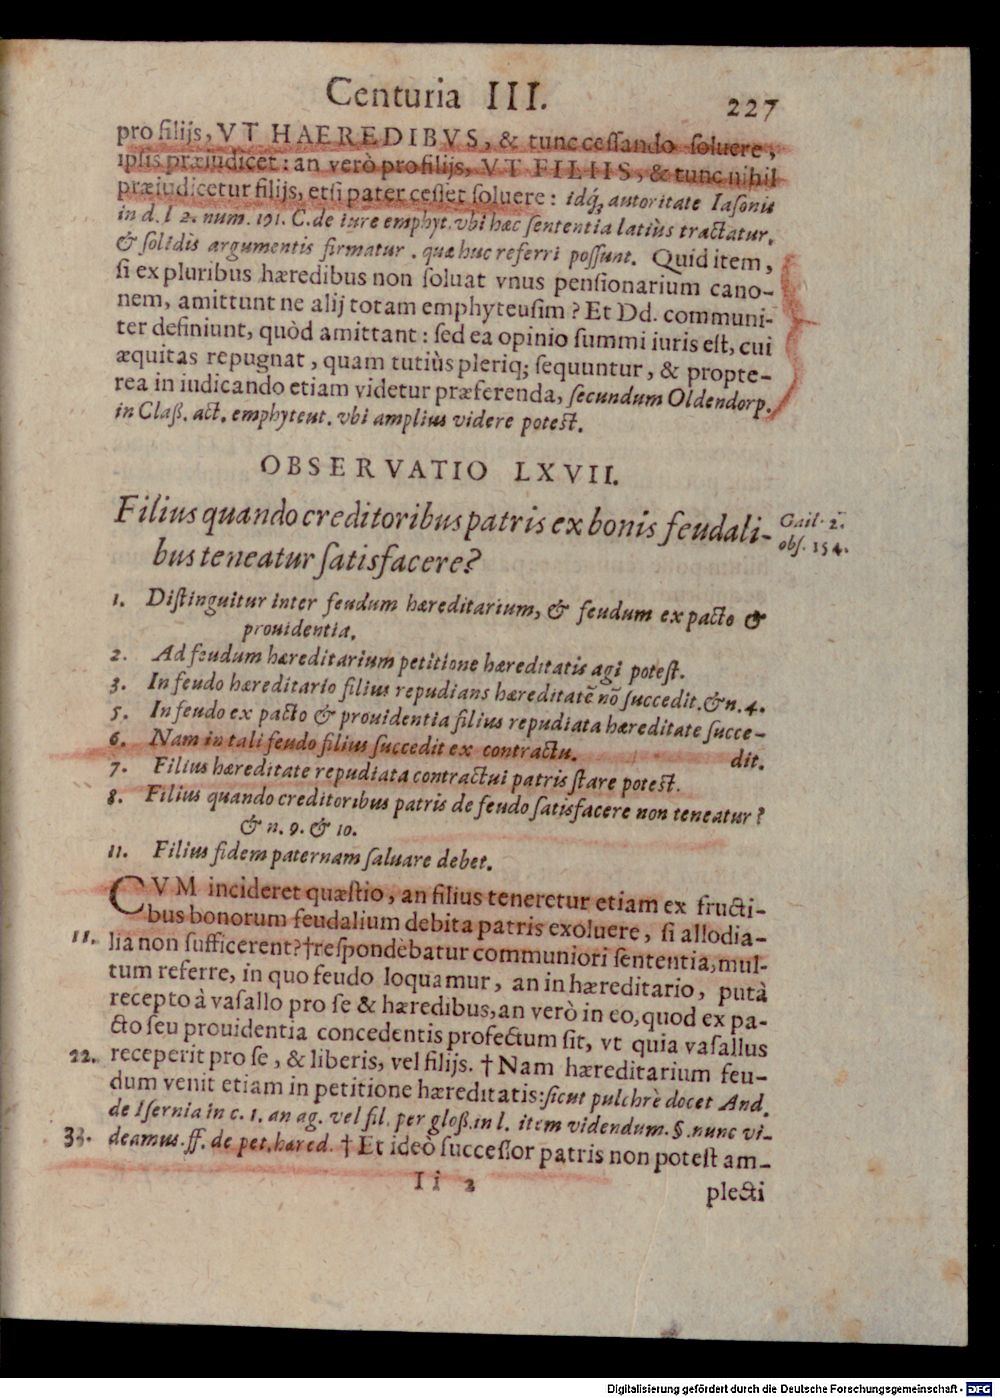 Centuria III. 227
pro filijs, VT HAEREDIBVS, & tunc cessando soluere,
ipsis præiudicet: an verò pro filijs, VT FILIIS, & tunc nihil
præiudicetur filijs, etsi pater cesset soluere: idq́; autoritate Iasonis
in d. l 2. num. 191. C. de iure emphyt. vbi hæc sententia latiùs tractatur,
& solidis argumentis firmatur. quæ huc referri possunt. Quid item,
si ex pluribus hæredibus non soluat vnus pensionarium cano-
nem, amittunt ne alij totam emphyteusim? Et Dd. communi-
ter definiunt, quòd amittant: sed ea opinio summi iuris est, cui
æquitas repugnat, quam tutiùs pleriq; sequuntur, & propte-
rea in iudicando etiam videtur præferenda, secundum Oldendorp.
in Claß. act. emphyteut. vbi amplius videre potest.
OBSERVATIO LXVII.
Filius quando creditoribus patris ex bonis feudali-
bus teneatur satisfacere?
Gail. 2.
obs. 154.
1. Distinguitur inter feudum hæreditarium, & feudum ex pacto &
prouidentia.
2. Ad feudum hæreditarium petitione hæreditatis agi potest.
3. In feudo hæreditario filius repudians hæreditatē nō succedit. & n. 4.
5. In feudo ex pacto & prouidentia filius repudiata hæreditate succe-
dit.
6. Nam in tali feudo filius succedit ex contractu.
7. Filius hæreditate repudiata contractui patris stare potest.
8. Filius quando creditoribus patris de feudo satisfacere non teneatur?
& n. 9. & 10.
11. Filius fidem paternam saluare debet.
CVM incideret quæstio, an filius teneretur etiam ex fructi-
bus bonorum feudalium debita patris exoluere, si allodia-
11. lia non sufficerent? †respondebatur communiori sententia, mul-
tum referre, in quo feudo loquamur, an in hæreditario, putà
recepto à vasallo pro se & hæredibus, an verò in eo, quod ex pa-
cto seu prouidentia concedentis profectum sit, vt quia vasallus
22. receperit pro se, & liberis, vel filijs. † Nam hæreditarium feu-
dum venit etiam in petitione hæreditatis: sicut pulchrè docet And.
de Isernia in c. 1. an ag. vel fil. per gloß. in l. item videndum. §. nunc vi-
33. deamus. ff. de pet. hæred. † Et ideò successor patris non potest am-
Ii 2 plecti
Digitalisierung gefördert durch die Deutsche Forschungsgemeinschaft - DFG